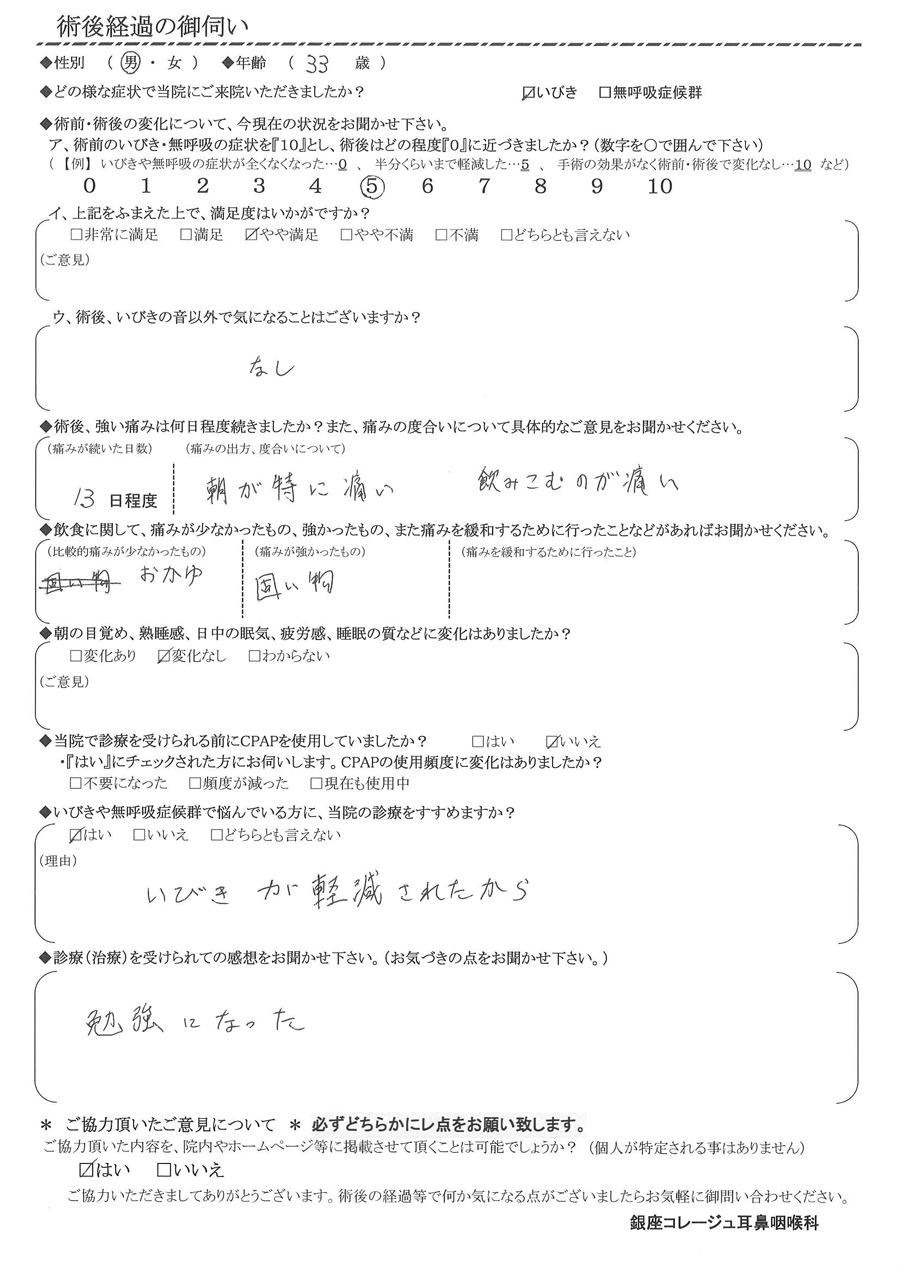 術後経過の御伺い
◆性別 （ 男 ・ 女 ） ◆年齢 （ 33 歳 ）
◆どの様な症状で当院にご来院いただきましたか？ ☑いびき □無呼吸症候群
◆術前・術後の変化について、今現在の状況をお聞かせ下さい。
ア、術前のいびき・無呼吸の症状を『10』とし、術後はどの程度『0』に近づきましたか？（数字を○で囲んで下さい）
（【例】いびきや無呼吸の症状が全くなくなった…0 、 半分くらいまで軽減した…5 、 手術の効果がなく術前・術後で変化なし…10 など）
0 1 2 3 4 5 6 7 8 9 10
イ、上記をふまえた上で、満足度はいかがですか？
□非常に満足 □満足 ☑やや満足 □やや不満 □不満 □どちらとも言えない
（ご意見）
ウ、術後、いびきの音以外で気になることはございますか？
なし
◆術後、強い痛みは何日程度続きましたか？また、痛みの度合いについて具体的なご意見をお聞かせください。
（痛みが続いた日数） （痛みの出方、度合いについて）
13 日程度 朝が特に痛い 飲みこむのが痛い
◆飲食に関して、痛みが少なかったもの、強かったもの、また痛みを緩和するために行ったことなどがあればお聞かせください。
（比較的痛みが少なかったもの） （痛みが強かったもの） （痛みを緩和するために行ったこと）
固い物 おかゆ 固い物
◆朝の目覚め、熟睡感、日中の眠気、疲労感、睡眠の質などに変化はありましたか？
□変化あり ☑変化なし □わからない
（ご意見）
◆当院で診療を受けられる前にCPAPを使用していましたか？ □はい ☑いいえ
・『はい』にチェックされた方にお伺いします。CPAPの使用頻度に変化はありましたか？
□不要になった □頻度が減った □現在も使用中
◆いびきや無呼吸症候群で悩んでいる方に、当院の診療をすすめますか？
☑はい □いいえ □どちらとも言えない
（理由）
いびきが軽減されたから
◆診療（治療）を受けられての感想をお聞かせ下さい。（お気づきの点をお聞かせ下さい。）
勉強になった
＊ ご協力頂いたご意見について ＊ 必ずどちらかにレ点をお願い致します。
ご協力頂いた内容を、院内やホームページ等に掲載させて頂くことは可能でしょうか？（個人が特定される事はありません）
☑はい □いいえ
ご協力いただきましてありがとうございます。術後の経過等で何か気になる点がございましたらお気軽に御問い合わせください。
銀座コレージュ耳鼻咽喉科